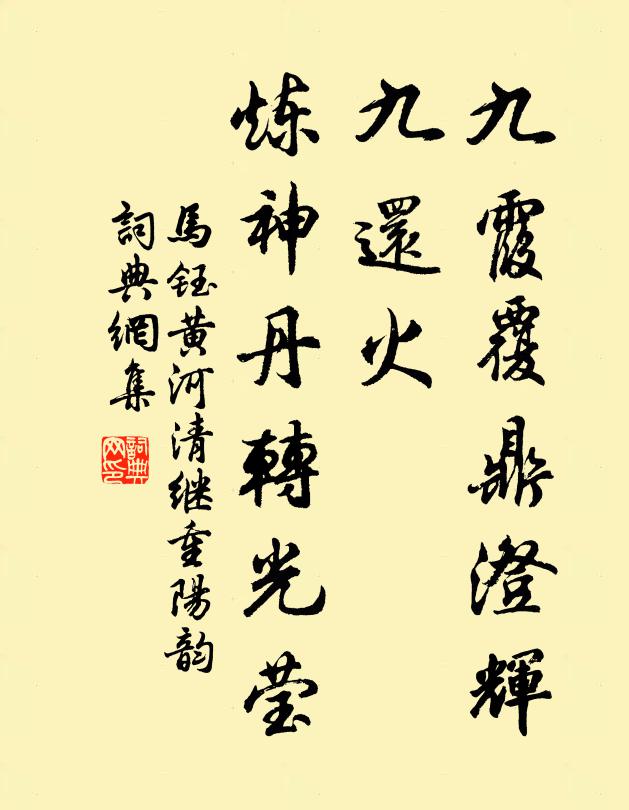 九霞覆鼎澄輝
九還火
炼神丹轉光莹
馬鈺黄河清继重陽韵
詞典網集
詞典网印